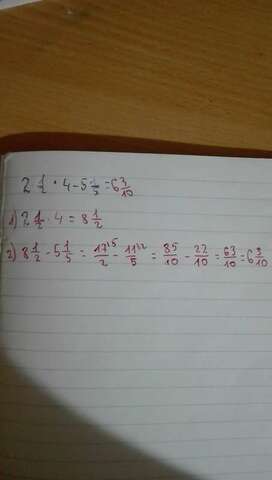 2 1/2 · 4 - 5 1/5 = 6 3/10
1) 2 1/2 · 4 = 8 1/2
2) 8 1/2 - 5 1/5 = 17^15/2 - 11^12/5 = 85/10 - 22/10 = 63/10 = 6 3/10